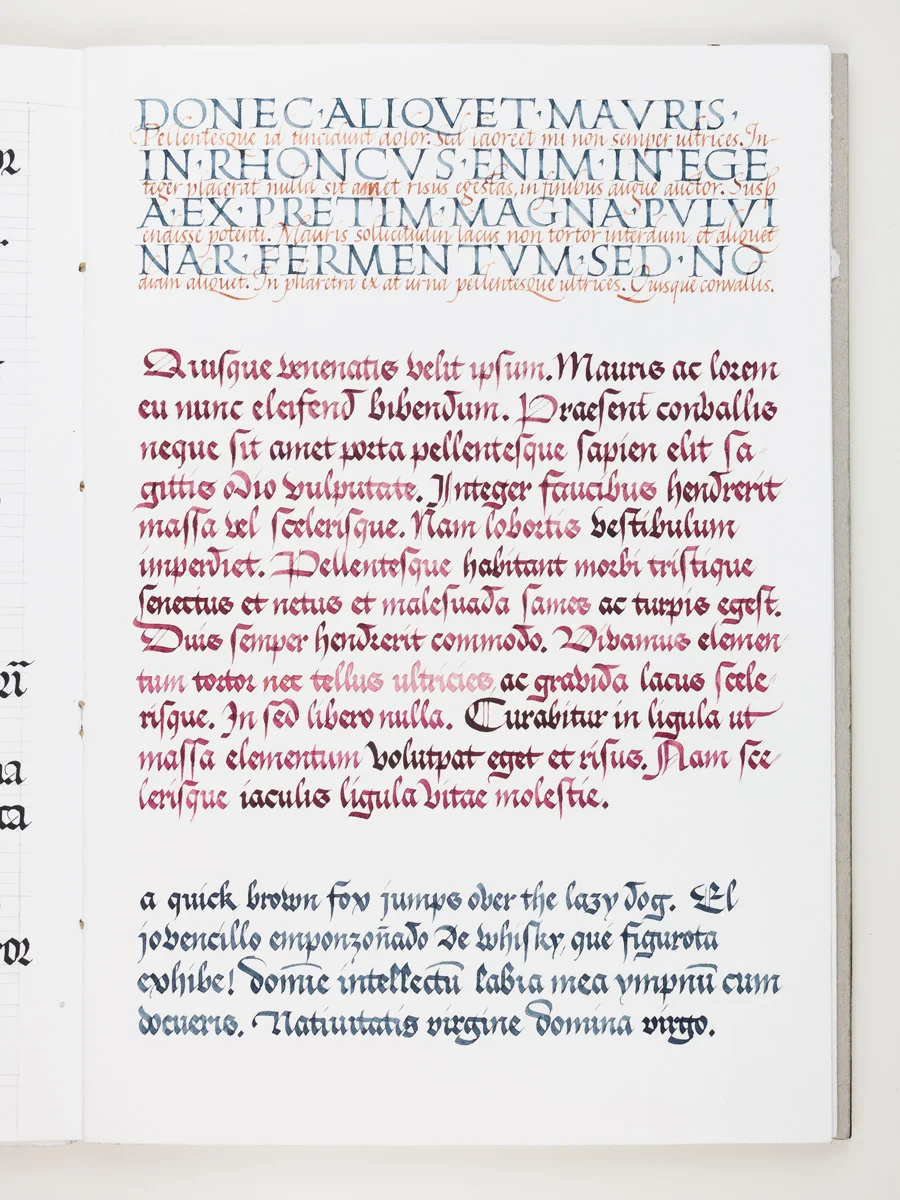 DONEC·ALIQVET·MAVRIS·
Pellentesque id tincidunt dolor. Sed laoreet mi non semper ultrices. In-
IN·RHONCVS·ENIM·INTEGE
teger placerat nulla sit amet risus egestas, in finibus augue auctor. Susp
A·EX·PRETIM·MAGNA·PVLVI
endisse potenti. Mauris solicitudin lacus non tortor interdum, et aliquet
NAR·FERMENTVM·SED·NO
diam aliquet. In pharetra ex at urna pellentesque ultrices. Quisque convallis.
Quiſque venenatis velit ipſum. Mauris ac lorem
eu nunc eleifend bibendum. Praeſent convallis
neque ſit amet porta pellenteſque ſapien elit ſa
gittis odio vulputate. Integer faucibus hendrerit
maſſa vel ſceleriſque. Nam lobortis veſtibulum
imperdiet. Pellenteſque habitant morbi triſtique
ſenectus et netus et maleſuada fames ac turpis egeſt.
Duis ſemper hendrerit commodo. Vivamus elemen
tum tortor nec tellus ultricies ac gravida lacus ſcele
riſque. In ſed libero nulla. Curabitur in ligula ut
maſſa elementum volutpat eget et riſus. Nam ſce
leriſque iaculis ligula vitae moleſtie.
a quick brown fox jumps over the lazy dog. El
jovencillo emponzoñado de whiſky que figurota
exhibe! Domīe intellectū labia mea ympnū cum
docueris. Natiuitatis virgine domina virgo.